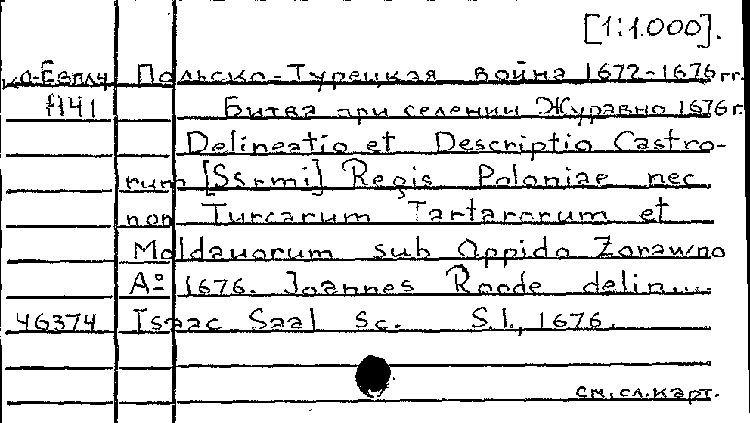 [1:1.000].
Ко-Евплч Польско-Турецкая война 1672-1676 гг.
А141 Битва при селении Журавно 1676 г.
Delineatio et Descriptio Castro-
rum [Ssrmi] Regis Poloniae nec
non Turcarum Tartarorum et
Moldauorum sub Oppido Zorawno
Aº 1676. Joannes Roode delin....
46374 Isaac Saal Sc. S.l., 1676.
см. сл. карт.